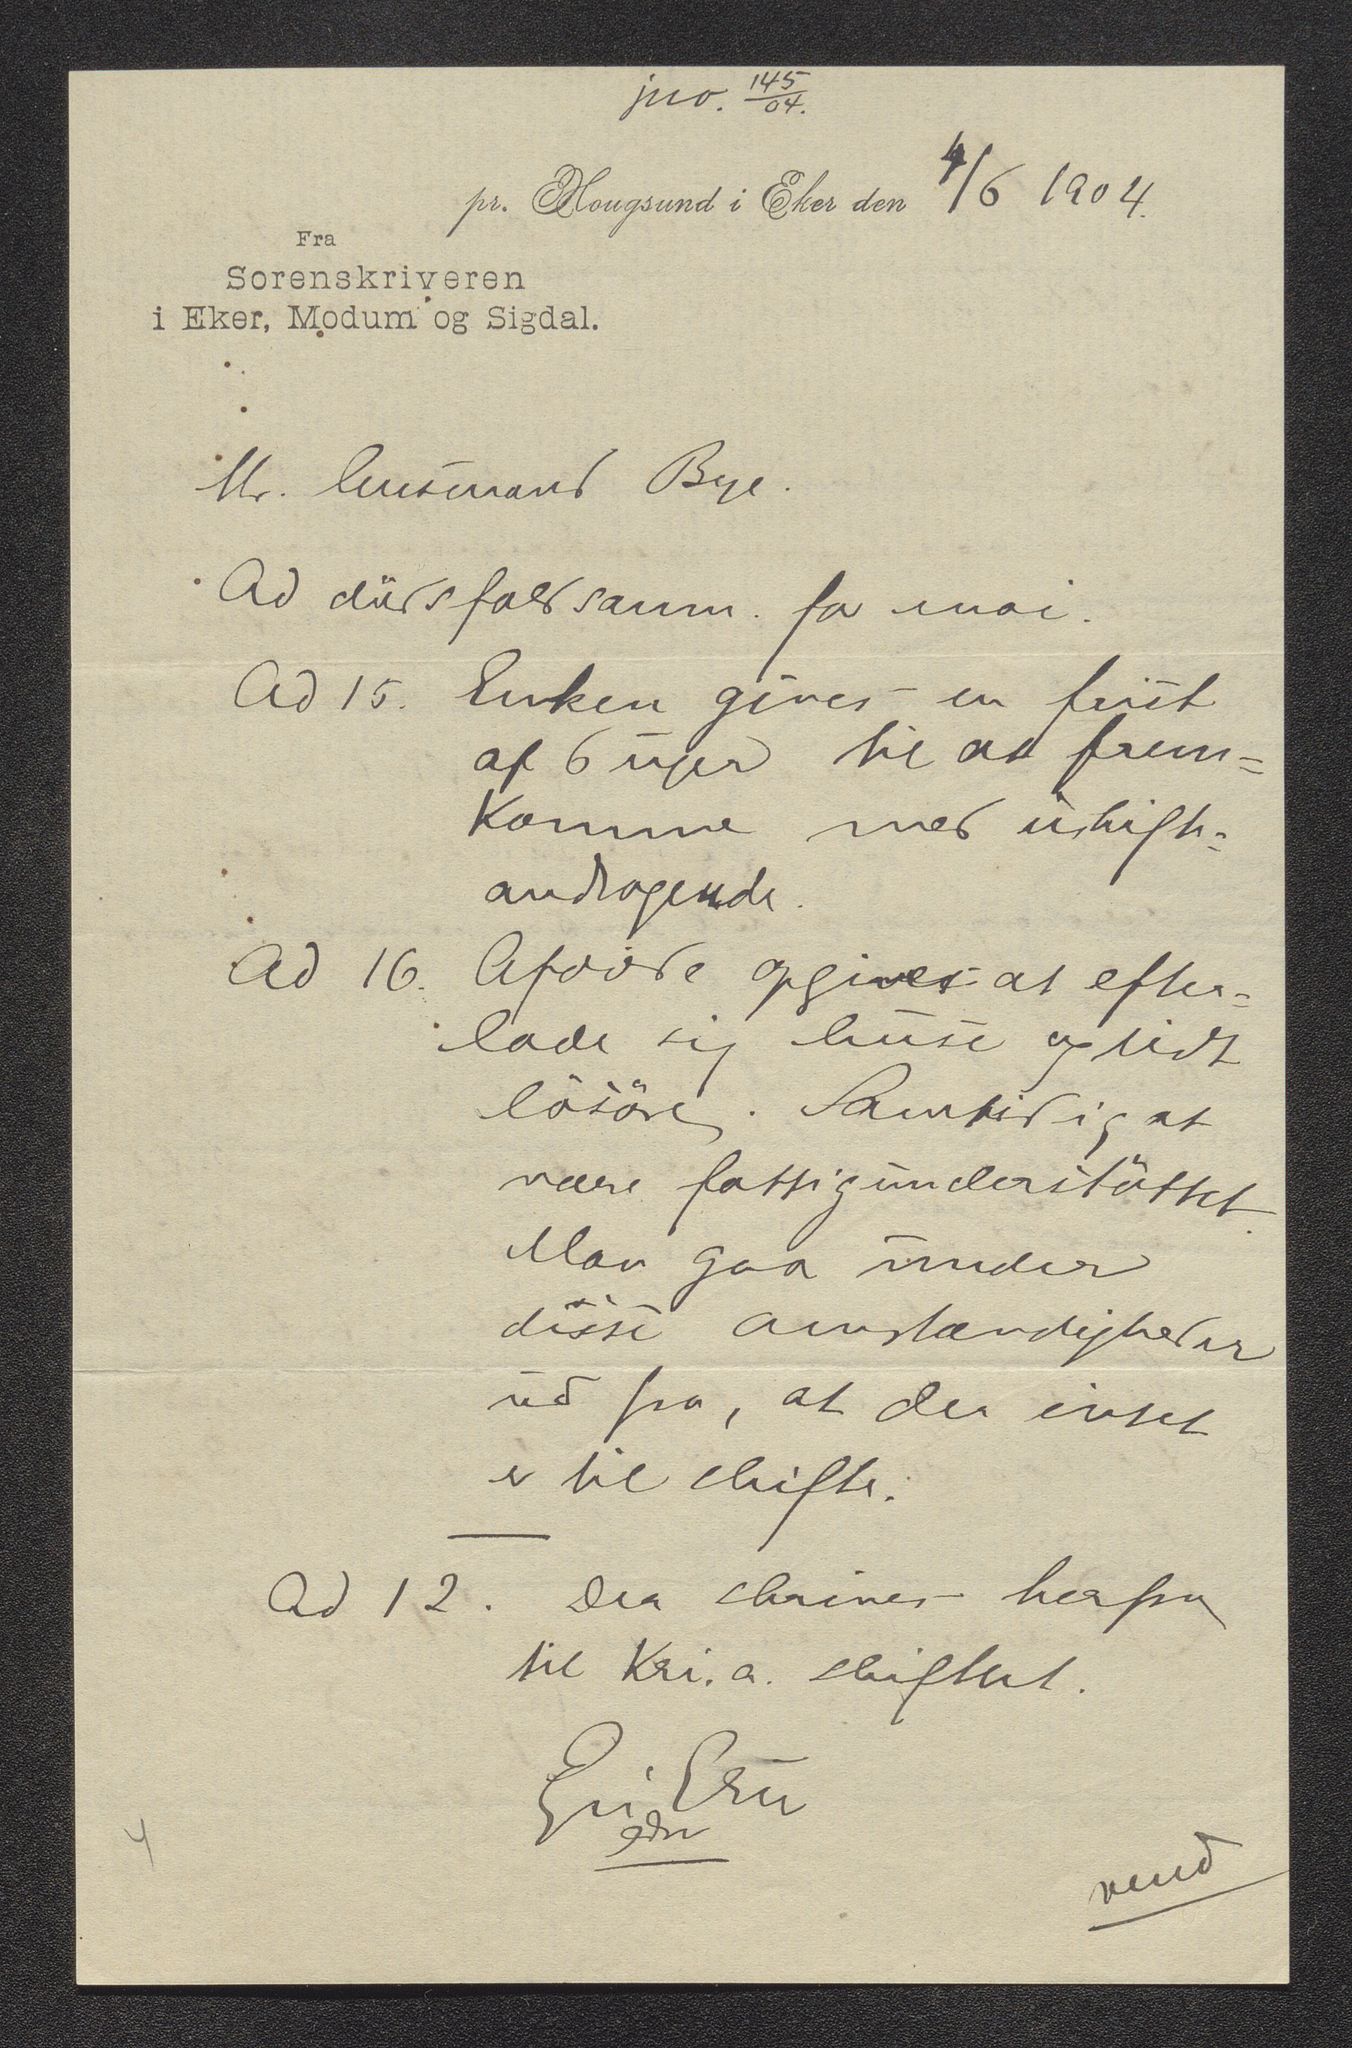 jno. 145/04.
pr. Hougsund i Eker den 4/6 1904.
Fra
Sorenskriveren
i Eker, Modum og Sigdal.
Hr. lensmand Bye.
Ad dødsfaldsanm. for mai.
Ad 15. Enken gives en frist
af 6 uger til at frem=
komme med uskifte=
andragende.
Ad 16. Afdøde opgives at efter=
lade sig huse og lidt
løsøre. Samtidig at
være fattigunderstøttet.
Man gaar under
disse omstændigheder
ud fra, at der intet
er til skifte.
Ad 12. Der skrives herfra
til Kri.a. skifteret.
edsv
vend
4